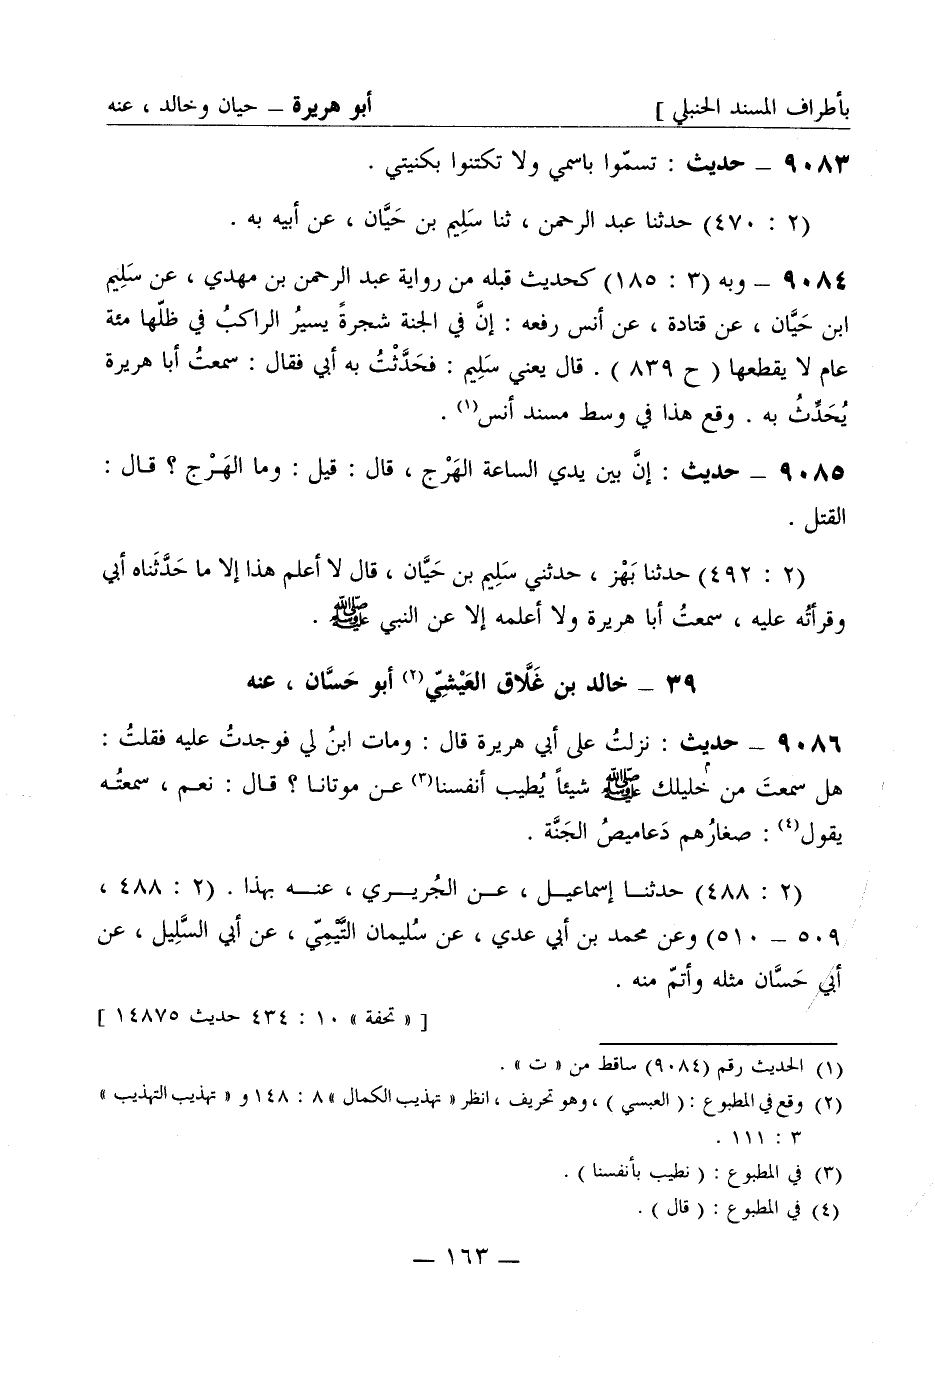 بأطراف المسند الحنبلي ] أبو هريرة ــ حيان وخالد ، عنه
٩٠٨٣ ــ حديث : تسمّوا باسمي ولا تكتنوا بكنيتي .
(٢ : ٤٧٠) حدثنا عبد الرحمن ، ثنا سَلِيم بن حَيَّان ، عن أبيه به .
٩٠٨٤ ــ وبه (٣ : ١٨٥) كحديث قبله من رواية عبد الرحمن بن مهدي ، عن سَلِيم
ابن حَيَّان ، عن قتادة ، عن أنس رفعه : إنَّ في الجنة شجرةً يسيرُ الراكبُ في ظلّها مئة
عام لا يقطعها ( ح ٨٣٩ ) . قال يعني سَلِيم : فحَدَّثْتُ به أبي فقال : سمعتُ أبا هريرة
يُحَدِّثُ به . وقع هذا في وسط مسند أنس(١) .
٩٠٨٥ ــ حديث : إنَّ بين يدي الساعة الهَرْج ، قال : قيل : وما الهَرْج ؟ قال :
القتل .
(٢ : ٤٩٢) حدثنا بَهْز ، حدثني سَلِيم بن حَيَّان ، قال لا أعلم هذا إلا ما حَدَّثَناه أبي
وقرأتُه عليه ، سمعتُ أبا هريرة ولا أعلمه إلا عن النبي ﷺ .
٣٩ ــ خالد بن غَلَّاق العَيْشِيّ(٢) أبو حَسَّان ، عنه
٩٠٨٦ ــ حديث : نزلتُ على أبي هريرة قال : ومات ابنُ لي فوجدتُ عليه فقلتُ :
هل سمعتَ من خليلك ﷺ شيئاً يُطيب أنفسنا(٣) عن موتانا ؟ قال : نعم ، سمعتُه
يقول(٤) : صغارُهم دَعاميصُ الجَنَّة .
(٢ : ٤٨٨) حدثنا إسماعيل ، عن الجُريري ، عنه بهذا . (٢ : ٤٨٨ ،
٥٠٩ ــ ٥١٠) وعن محمد بن أبي عدي ، عن سُليمان التَّيْمِيّ ، عن أبي السَّلِيل ، عن
أبي حَسَّان مثله وأتمّ منه .
[ « تحفة » ١٠ : ٤٣٤ حديث ١٤٨٧٥ ]
(١) الحديث رقم (٩٠٨٤) ساقط من « ت » .
(٢) وقع في المطبوع : ( العبسي ) ، وهو تحريف ، انظر « تهذيب الكمال » ٨ : ١٤٨ و « تهذيب التهذيب »
٣ : ١١١ .
(٣) في المطبوع : ( نطيب بأنفسنا ) .
(٤) في المطبوع : ( قال ) .
ــ ١٦٣ ــ